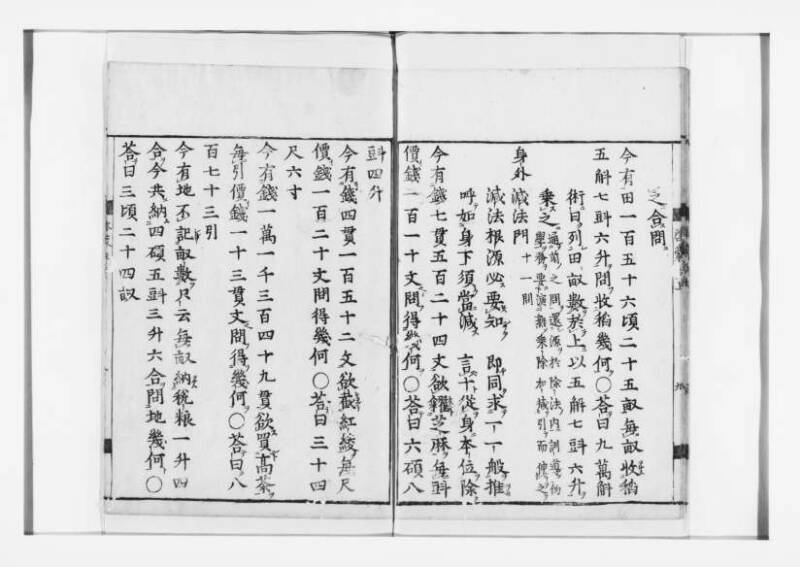 之合問
今有田一百五十六頃二十五畝每畝收稻
五斛七㪷六升問收稻幾何○荅曰九萬斛
術曰列田畝數於上以五斛七㪷六升
乘之
身外減法門十一問
減法根源必要知 即同求一一般推
呼如身下須當減 言十從身本位除
今有錢七貫五百二十四文欲糴芝麻每㪷
價錢一百一十文問得幾何○荅曰六碩八
㪷四升
今有錢四貫一百五十二文欲截紅綾每尺
價錢一百二十文問得幾何○荅曰三十四
尺六寸
今有錢一萬一千三百四十九貫欲買高茶
每引價錢一十三貫文問得幾何○荅曰八
百七十三引
今有地不記畝數只云每畝納稅粮一升四
合今共納四碩五㪷三升六合問地幾何○
荅曰三頃二十四畝